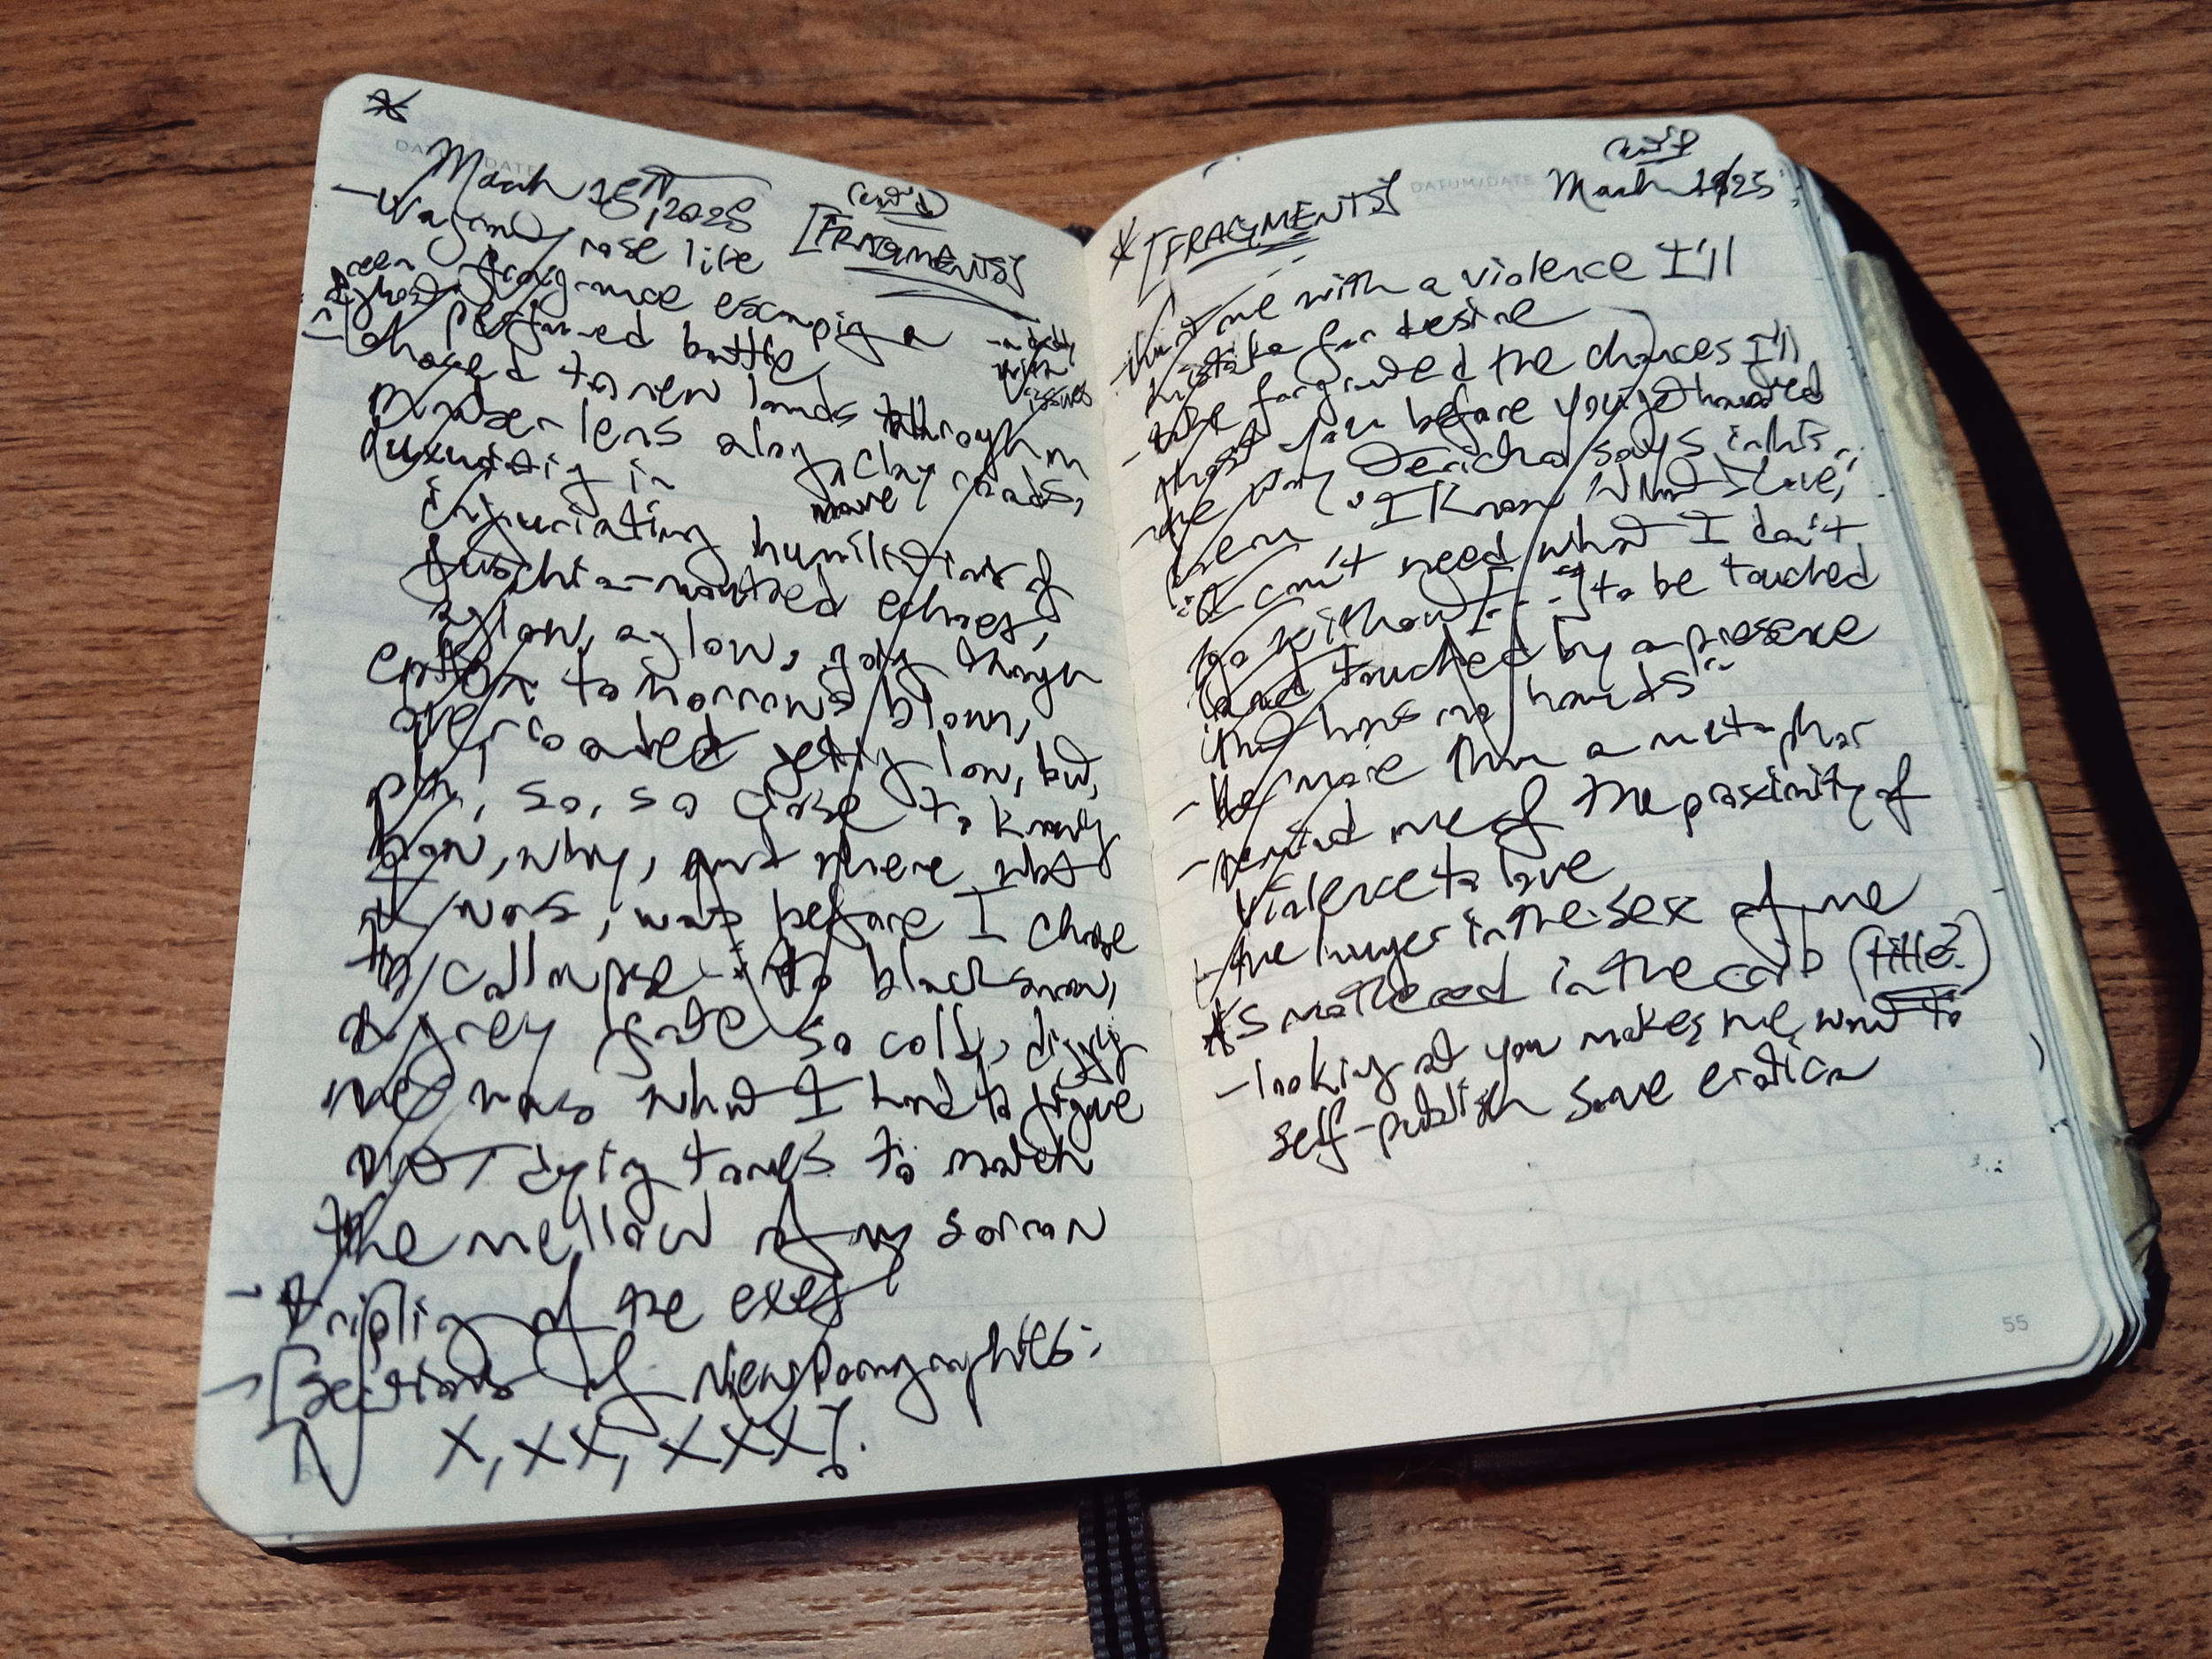 DATUM/DATE
March 15th, 2025
(cont'd)
[FRAGMENTS]
rose like
fragrance escaping a
perfumed bottle,
- a body
with
issues
chased to new lands through m
lens along clay roads,
in
mauve
infuriating humiliations of
echoes,
aglow, aglow, going through
to tomorrows blown,
overcoated getting low, but,
so, so close to knowing
how, why, and where what
it was, was before I chose
to collapse into black snow,
a grey gate so cold, digging
me was what I had to figure
dying tones to match
the mellow of my sorrow
- of the exes
- [Sections of New Pornographies:
X, XX, XXX].
DATUM/DATE
(cont'd)
March 25
* [FRAGMENTS]
- hurt me with a violence I'll
mistake for desire
- take for granted the chances I'll
you before you get
- the way says in his
"I know what I love,
"I can't need what I don't
go without [...] to be touched
and touched by a presence
that has no hands"
- be more than a metaphor
- remind me of the proximity of
violence to love
- the hunger in the sex of me
* smothered in the crib (title?)
- looking at you makes me want to
self-publish some erotica
55